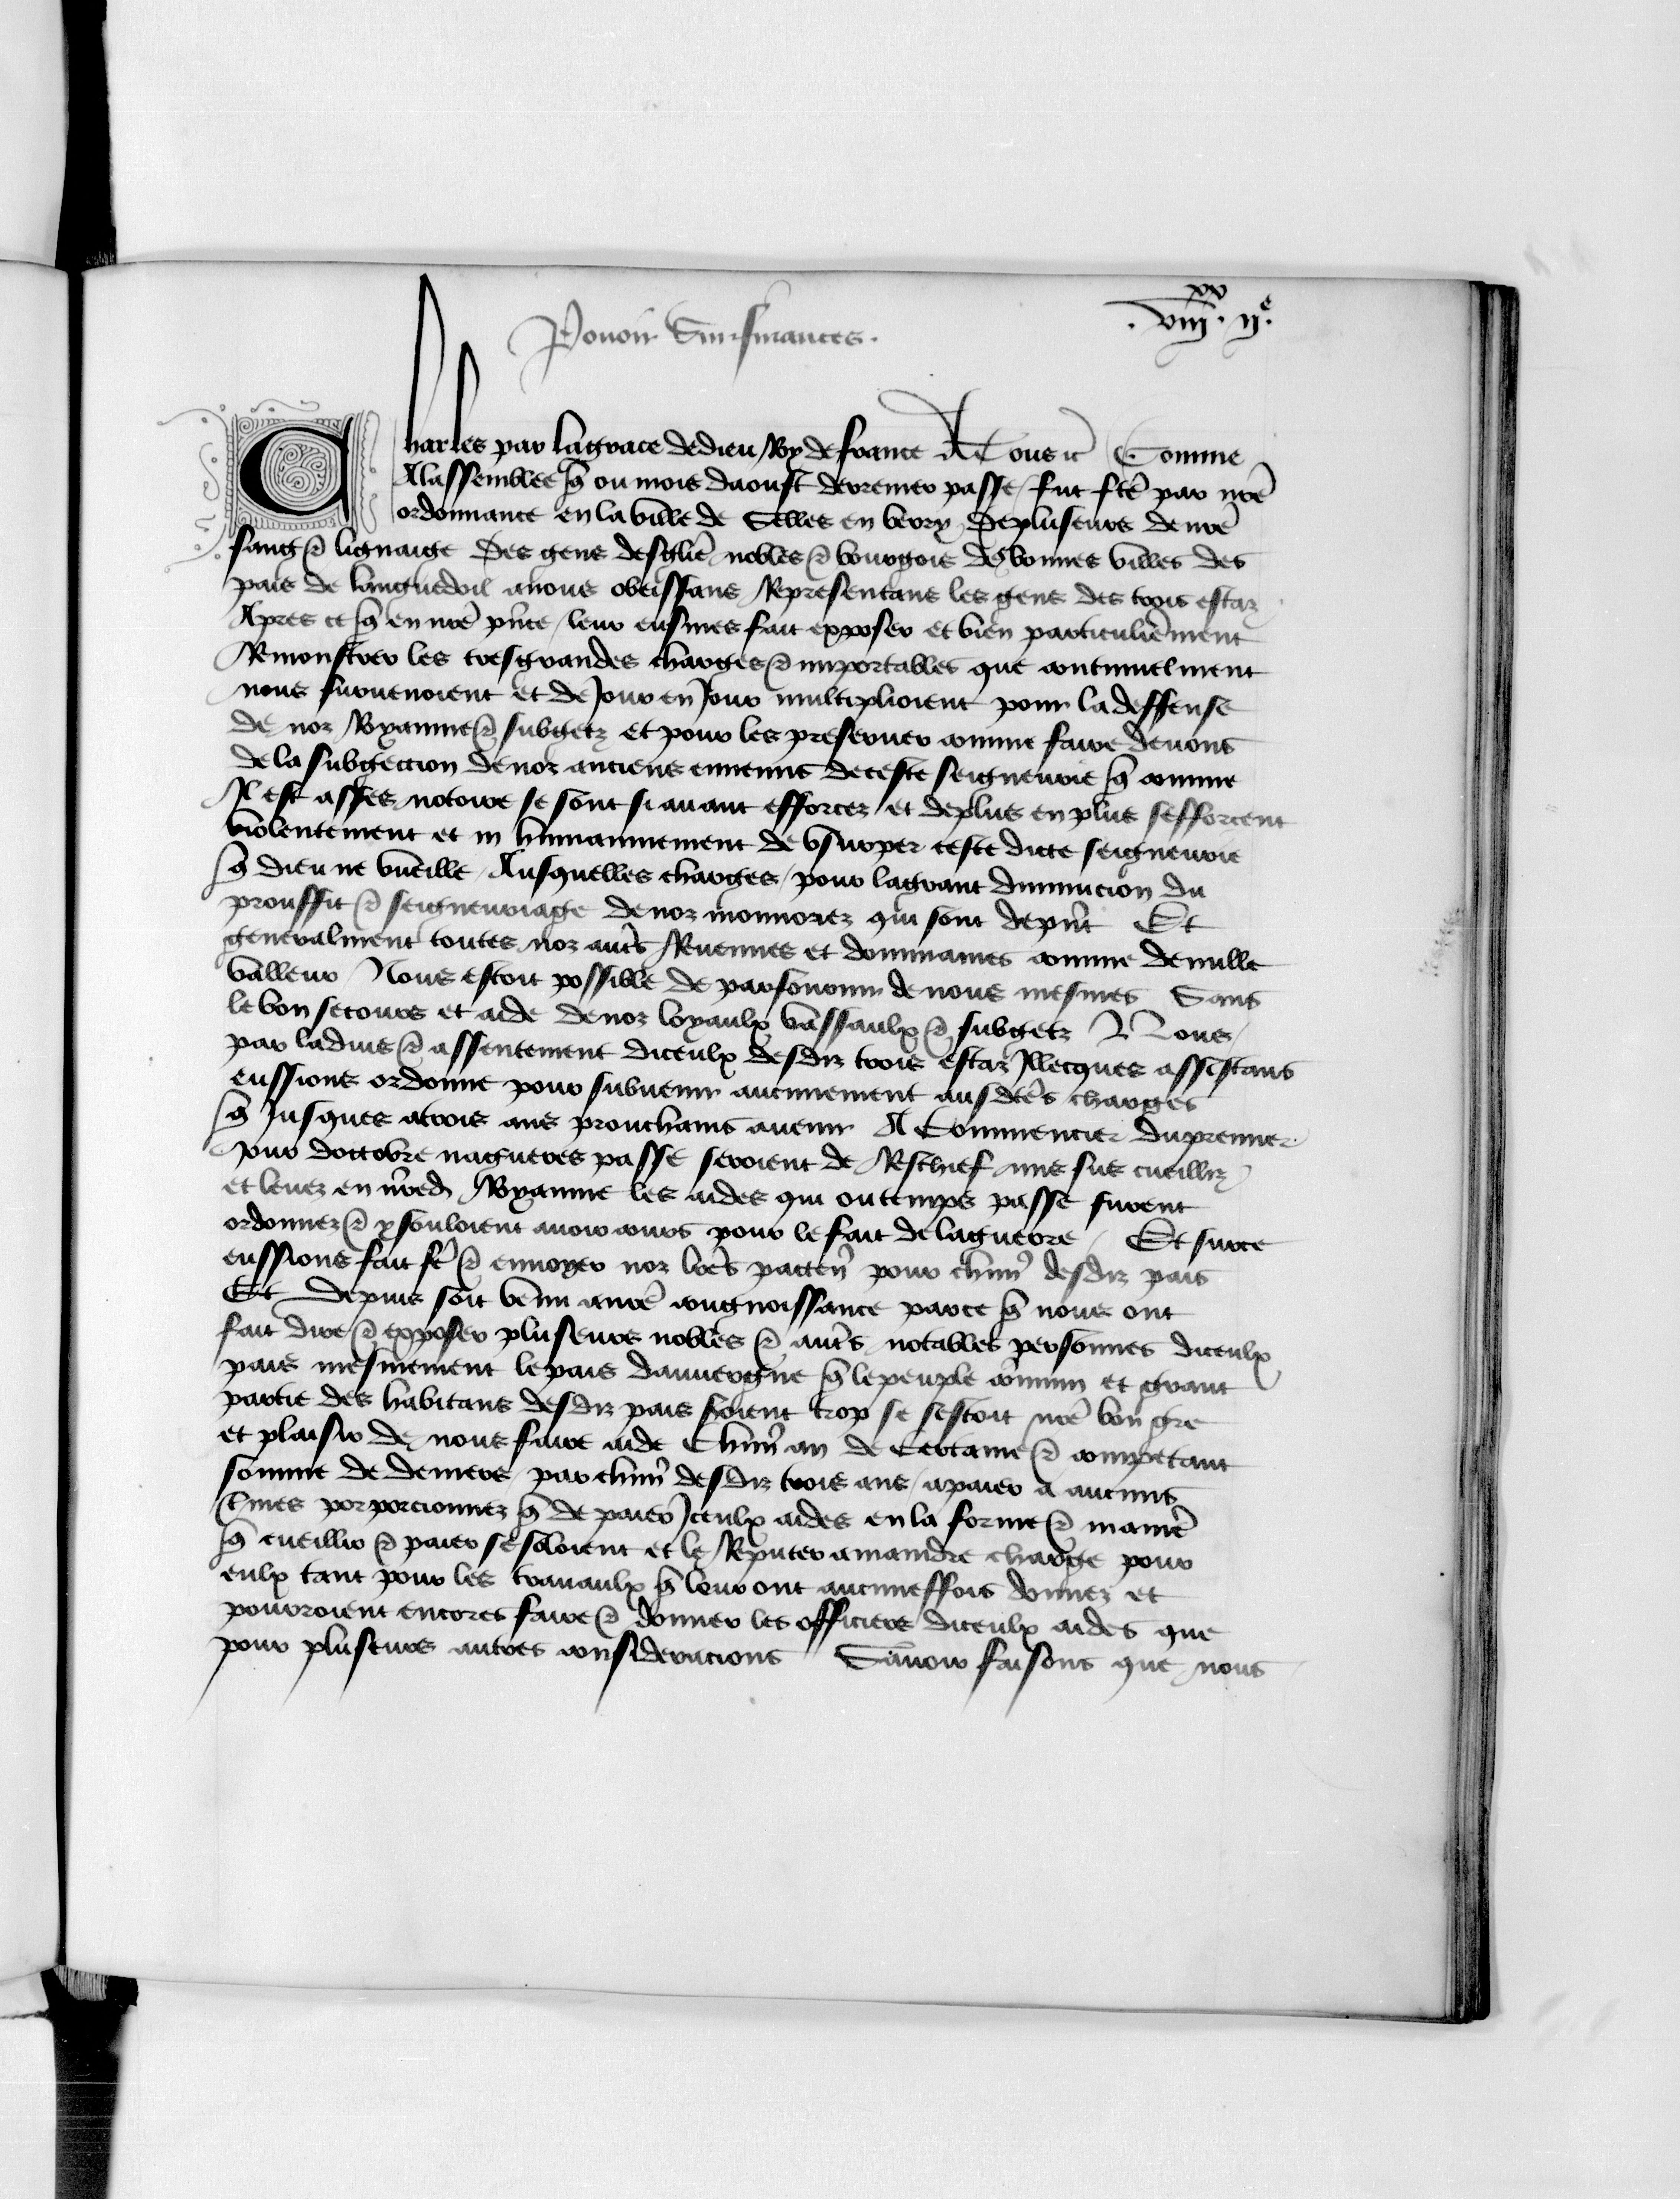 Pouoir sur finances.
xx
. viii . iie.
Charles par lagrace dedieu Roy de france A Tous etc Comme
Alassemblee q̄ ou mois daoust derrenier passe / fut fc̄e par nr̄e
ordonnance en la ville de Selles en berry / Depluseurs denr̄e
sang & lignaige Des gens desglīe nobles & bourgois des bonnes villes des
pais de languedoil anous obeissans Representans les gens des trois estaz
Apres ce q̄ en nr̄e pn̄ce / leur eusmes fait exposer et bien particulierem̄ent
Remonstrer les tresgrandes charges & importables que continuelment
nous suruenoient et de Jour en Jour multiplioient pour la deffense
de noz Royaume & subgetz et pour les preseruer comme faire deuons
dela subgeccion denoz anciens ennemis deceste seigneurie q̄ comme
Il est assez notoire se sont si auant efforcez et deplus en plus sefforcent
violentement et in humainnement de vsurper ceste dicte seigneurie
q̄ dieu ne vueille / Ausquelles charges / pour lagrant diminucion du
prouffit & seigneuriage denoz monnoiez qui sont depn̄t Et
generalment toutes noz aut̄s Reuenues et dommaines comme denulle
valleur Nous estoit possible de parfournir de nous mesmes Sans
le bon secours et aide denoz loyaulx vassaulx & subgetz Nous /
par laduis & assentement diceulx desdiz trois estaz Illecques assistans
eussions ordonne pour subuenir aucunement ausdc̄es charges
q̄ Jusques atrois ans prouchains auenir A Commencier dupremier
Jour doctobre nagueres passe seroient de Rechief mis sus cueilliz
et leuez en nr̄ed Royaume les aides qui ou temps passe furent
ordonnez & y souloient auoir cours pour le fait delaguerre / Et surce
eussions fait fe͛ & enuoyer noz lr̄es patten̄ pour chūn desdiz pais
Et depuis soit venu anr̄e congnoissance parce q̄ nous ont
fait dire & exposer pluseurs nobles & aut̄s notables personnes diceulx
pais mesmement le pais dauuergne q̄ lepeuple cōmun et grant
partie des habitans desdiz pais trop se sestoit nr̄e bon gre
et plaisir de nous faire aide Chūn an de Certaine & competant
somme de deniers / par chūn desdiz trois ans / apaier a aucuns
t̄mes porporcionnez q̄ de paier Iceulx aides en la forme & manīe
q̄ cueillir & paier se souloient et le Reputer amaindre charge pour
eulx tant pour les trauaulx q̄ leur ont aucuneffois donnez et
pourroient encores faire & donner les officiers diceulx aides que
pour pluseurs autres consideracions Sauoir faisons que nous